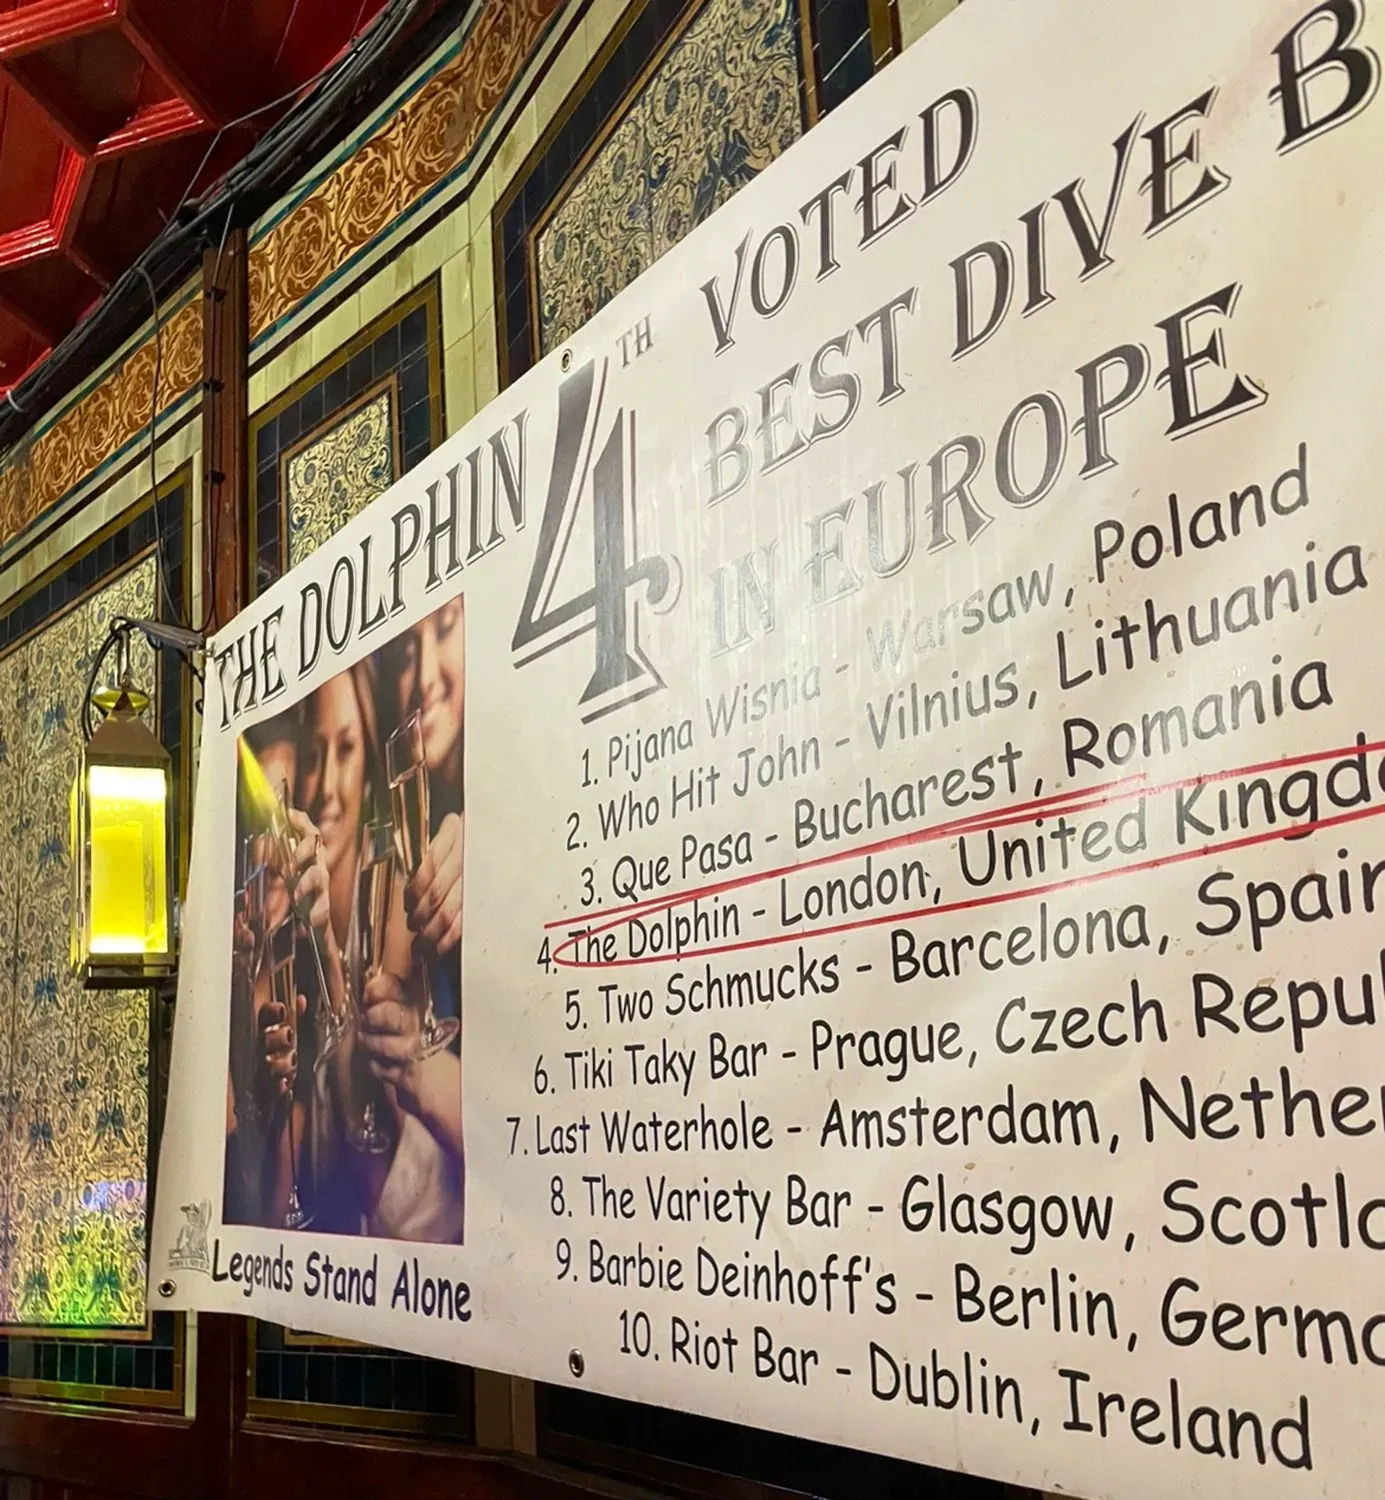 THE DOLPHIN
4TH VOTED
BEST DIVE B
IN EUROPE
1. Pijana Wisnia - Warsaw, Poland
2. Who Hit John - Vilnius, Lithuania
3. Que Pasa - Bucharest, Romania
4. The Dolphin - London, United Kingdo
5. Two Schmucks - Barcelona, Spain
6. Tiki Taky Bar - Prague, Czech Repu
7. Last Waterhole - Amsterdam, Nether
8. The Variety Bar - Glasgow, Scotla
9. Barbie Deinhoff's - Berlin, Germa
10. Riot Bar - Dublin, Ireland
Legends Stand Alone